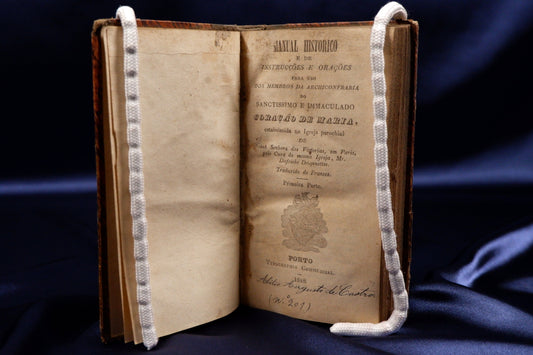 MANUAL HISTORICO
E DE
INSTRUCÇÕES E ORAÇÕES
PARA USO
DOS MEMBROS DA ARCHICONFRARIA
DO
SANCTISSIMO E IMMACULADO
CORAÇÃO DE MARIA,
estabelecida na Igreja parochial
DE
Senhora das Victorias, em Paris,
pelo Cura da mesma Igreja, Mr.
Dufriche Desgenettes.
Traduzido do Francez.
Primeira Parte.
PORTO
TYPOGRAPHIA COMMERCIAL.
Abilio Augusto de Castro
(N.º 201)